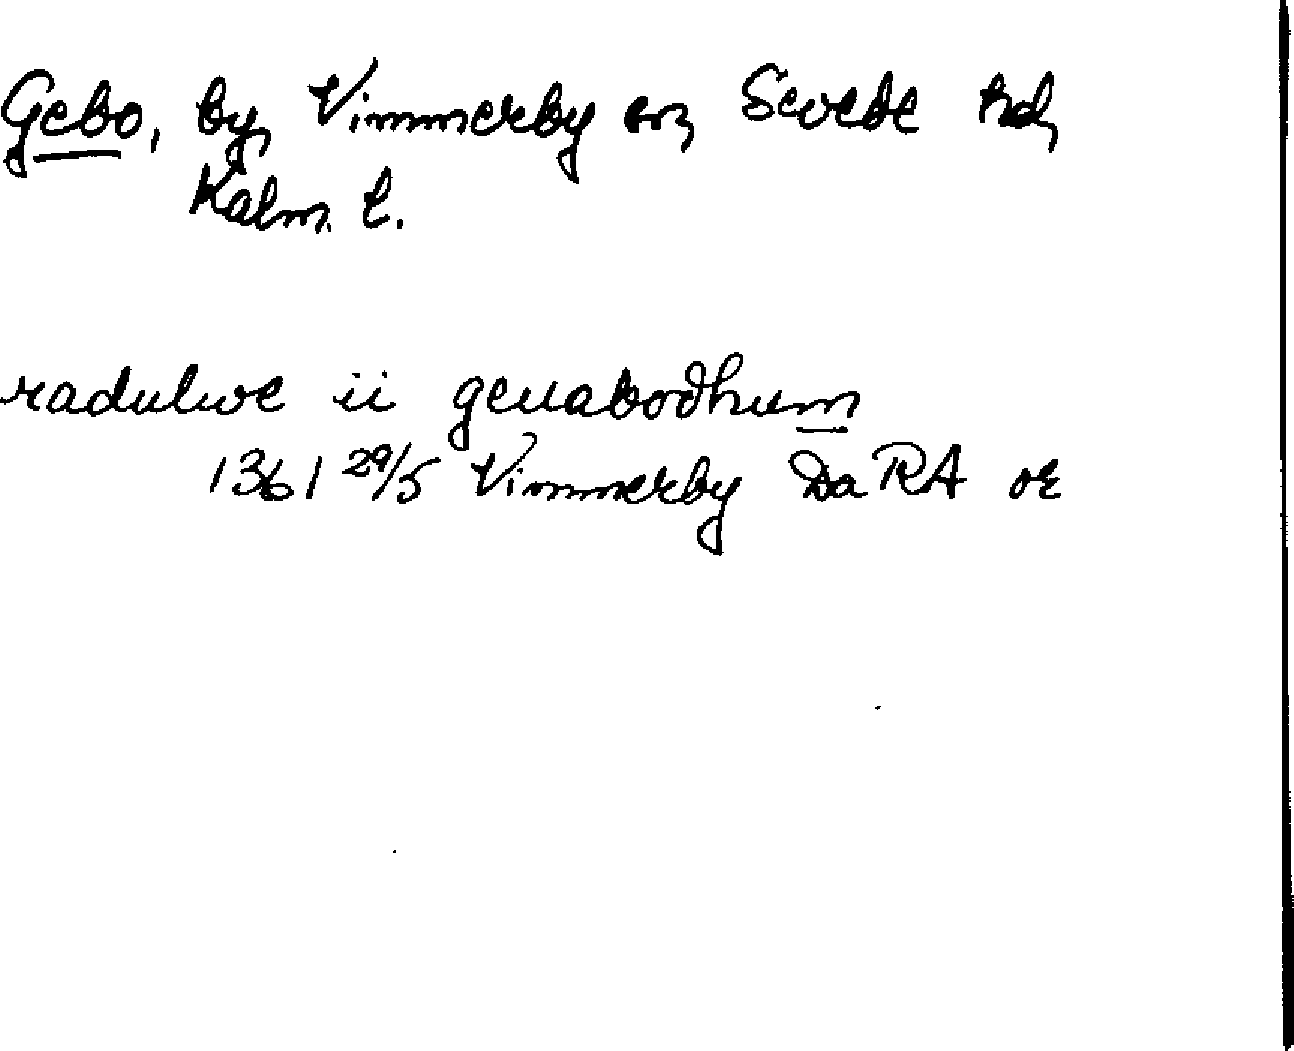 Gebo, by, Vimmerby sn, Sevede hd,
Kalm. l.
radulwe ii geuabodhum
1361 29/5 Vimmerby Da RA or